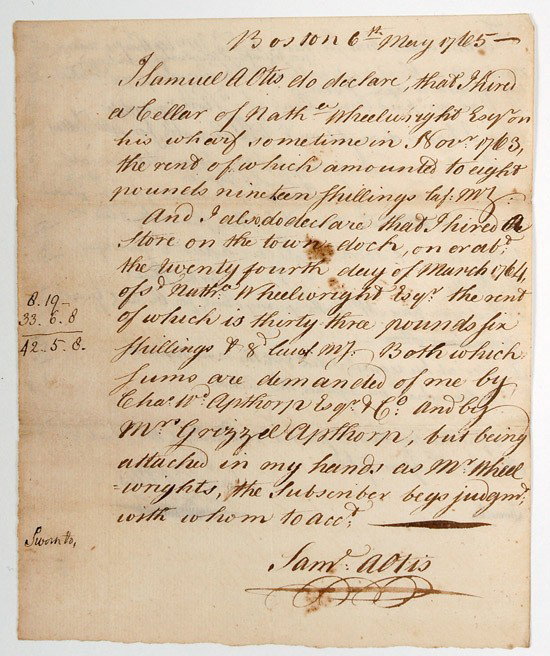 Boston 6th May 1765 —
I Samuel A Otis do declare, that I hired
a Cellar of Nathel Wheelwright Esqr on
his wharf sometime in Novr 1763,
the rent of which amounted to eight
pounds nineteen shillings Laf. My.
And I also do declare that I hired a
Store on the town dock, on or abt
the twenty fourth day of March 1764
of sd Nathel Wheelwright Esqr the rent
of which is thirty three pounds six
shillings & 8d Lawf My. Both which
sums are demanded of me by
Chas Wd Apthorp Esqr & Co and by
Mrs Grizzel Apthorp, but being
attached in my hands as Mr Wheel
wrights, the Subscriber begs judgmt
with whom to acct
Saml A Otis
8. 19 –
33. 6. 8
42. 5. 8.
Sworn to,